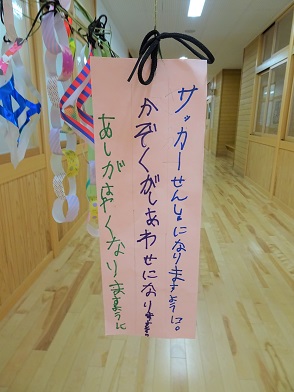 サッカーせんしゅになりますように。
かぞくがしあわせになります
あしがはやくなりますように